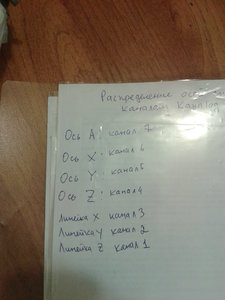 Распределение осей
каналам Kanalog
Ось A: канал 7
Ось X: канал 6
Ось Y: канал 5
Ось Z: канал 4
Линейка X канал 3
Линейка Y канал 2
Линейка Z канал 1